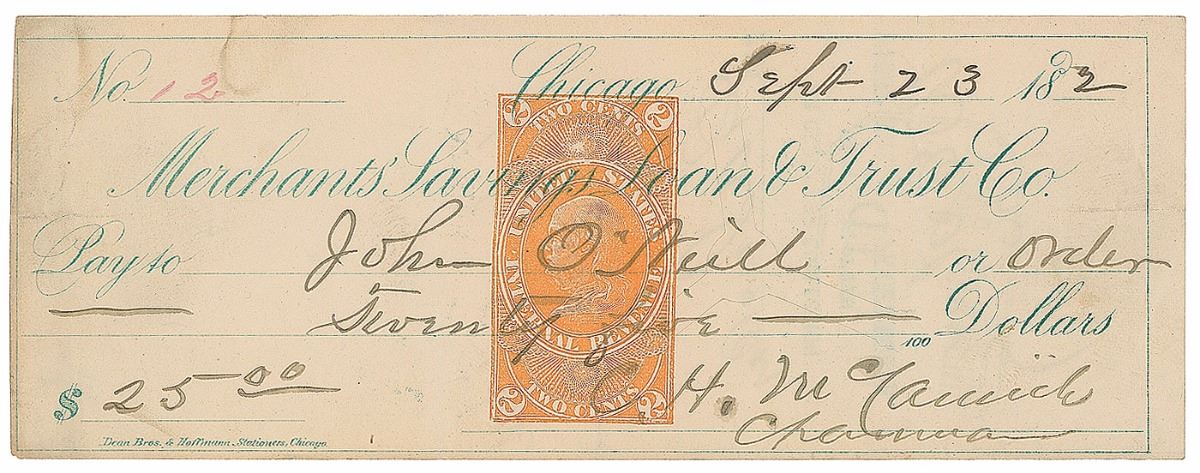 No. 12 Chicago Sept 23 1882
Merchants' Savings Loan & Trust Co.
Pay to John O'Neill or order
Twenty five Dollars
100
$ 25 00
C. H. McCormick
Chairman
Dean Bros. & Hoffmann, Stationers, Chicago
2 TWO CENTS 2
UNITED STATES
INTERNAL REVENUE
2 TWO CENTS 2